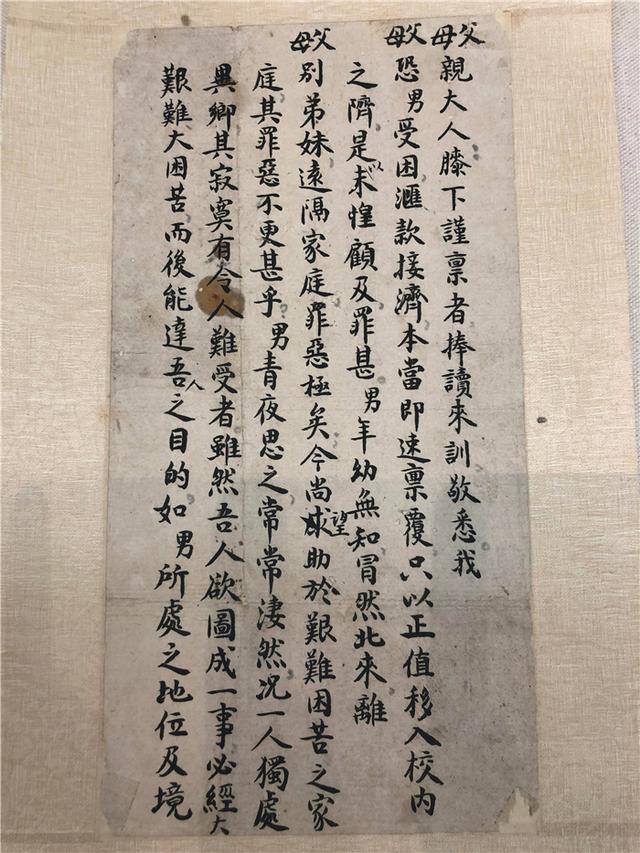 父母親大人膝下謹稟者捧讀來訓敬悉我
父母恐男受困滙款接濟本當即速稟覆只以正值移入校內
之際是以未惶顧及罪甚男年幼無知冒然北來離
父母別弟妹遠隔家庭罪惡極矣今尚望求助於艱難困苦之家
庭其罪惡不更甚乎男青夜思之常常淒然况一人獨處
異鄉其寂寞有令人難受者雖然吾人欲圖成一事必經大
艱難大困苦而後能達吾人之目的如男所處之地位及境